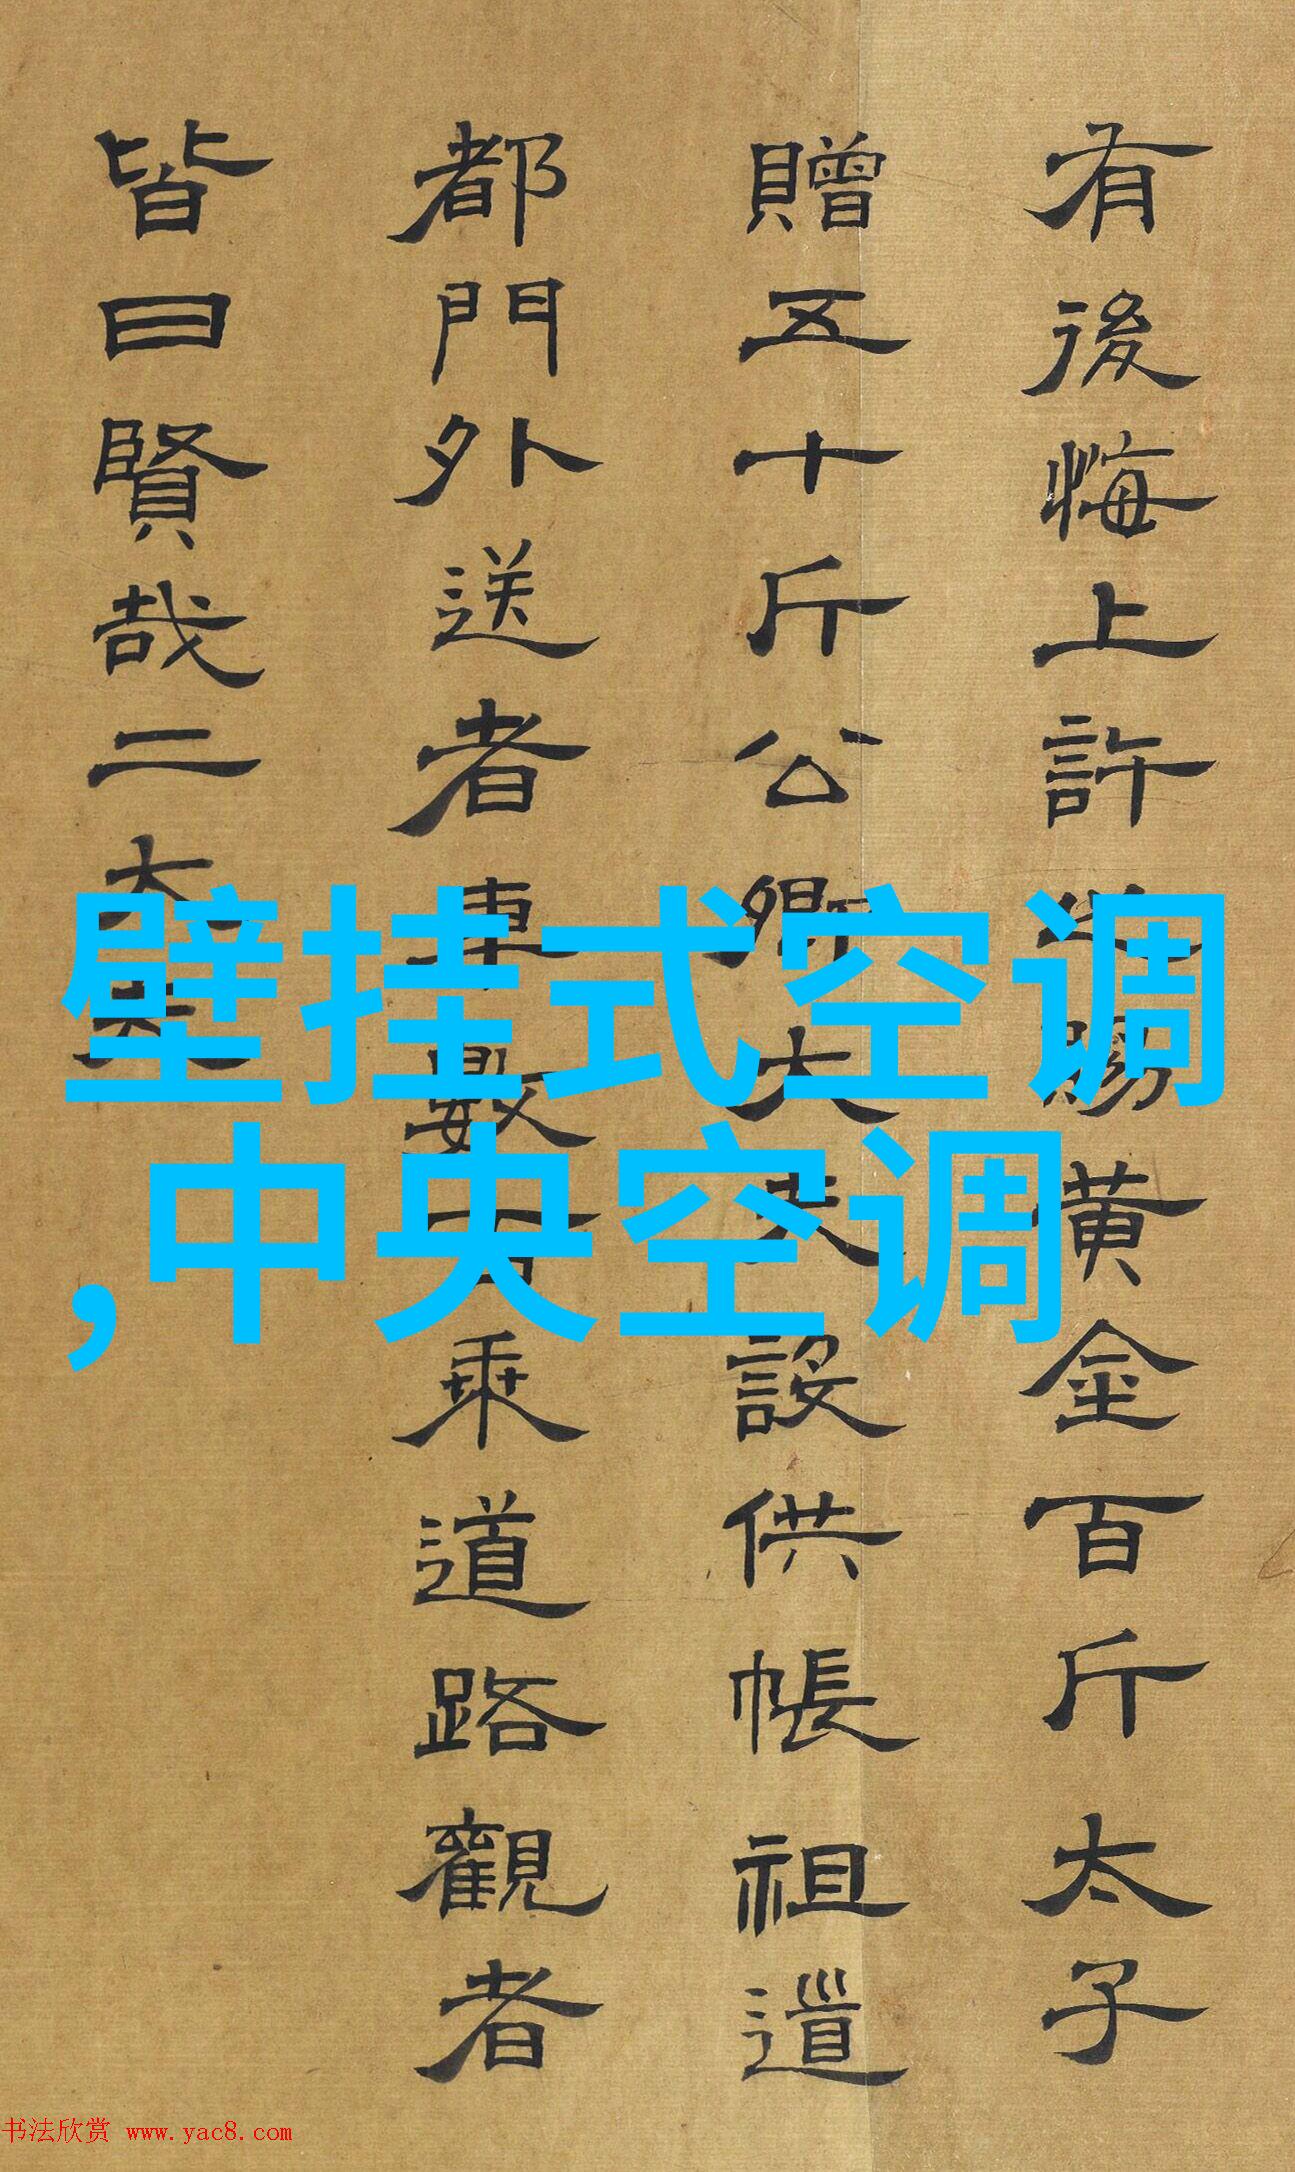 有後悔上許之賜黃金百斤太子
贈五十斤公卿大夫設供帳祖道
都門外送者車數百乘道路觀者
皆曰賢哉二大夫
壁挂式空调
,中央空调
书法欣赏 www.yac8.com